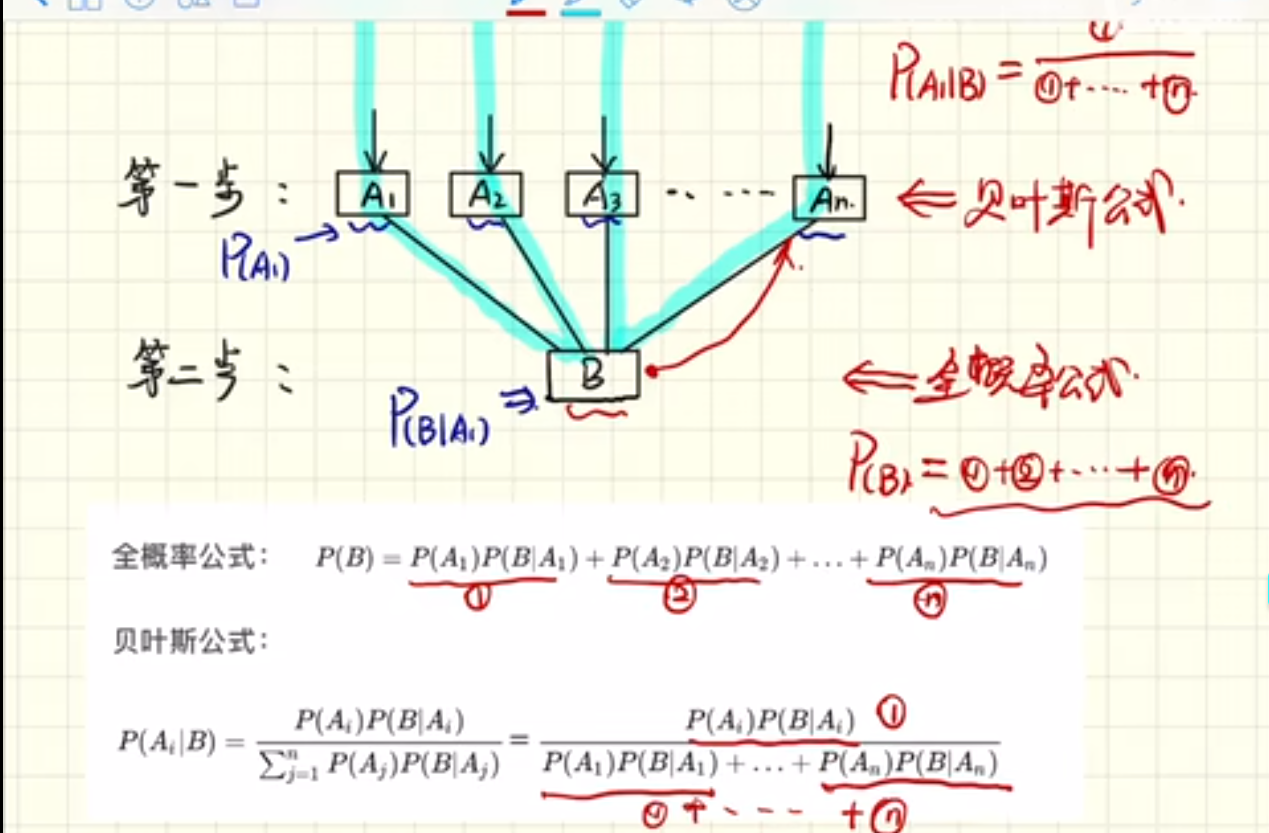 P(A₁|B) = ①/(①+····+ⓝ)
第一步： A₁ A₂ A₃ ····· Aₙ. ⇐ 贝叶斯公式.
P(A₁) →
第二步： B ⇐ 全概率公式.
P(B|A₁) ⇒
P(B) = ①+②+····+ⓝ.
全概率公式： P(B) = P(A₁)P(B|A₁) + P(A₂)P(B|A₂) + … + P(Aₙ)P(B|Aₙ)
① ② ⓝ
贝叶斯公式：
P(Aᵢ|B) = P(Aᵢ)P(B|Aᵢ) / ∑ⁿⱼ₌₁ P(Aⱼ)P(B|Aⱼ) = P(Aᵢ)P(B|Aᵢ) ① / P(A₁)P(B|A₁) + … + P(Aₙ)P(B|Aₙ)
① + - - - - + ⓝ